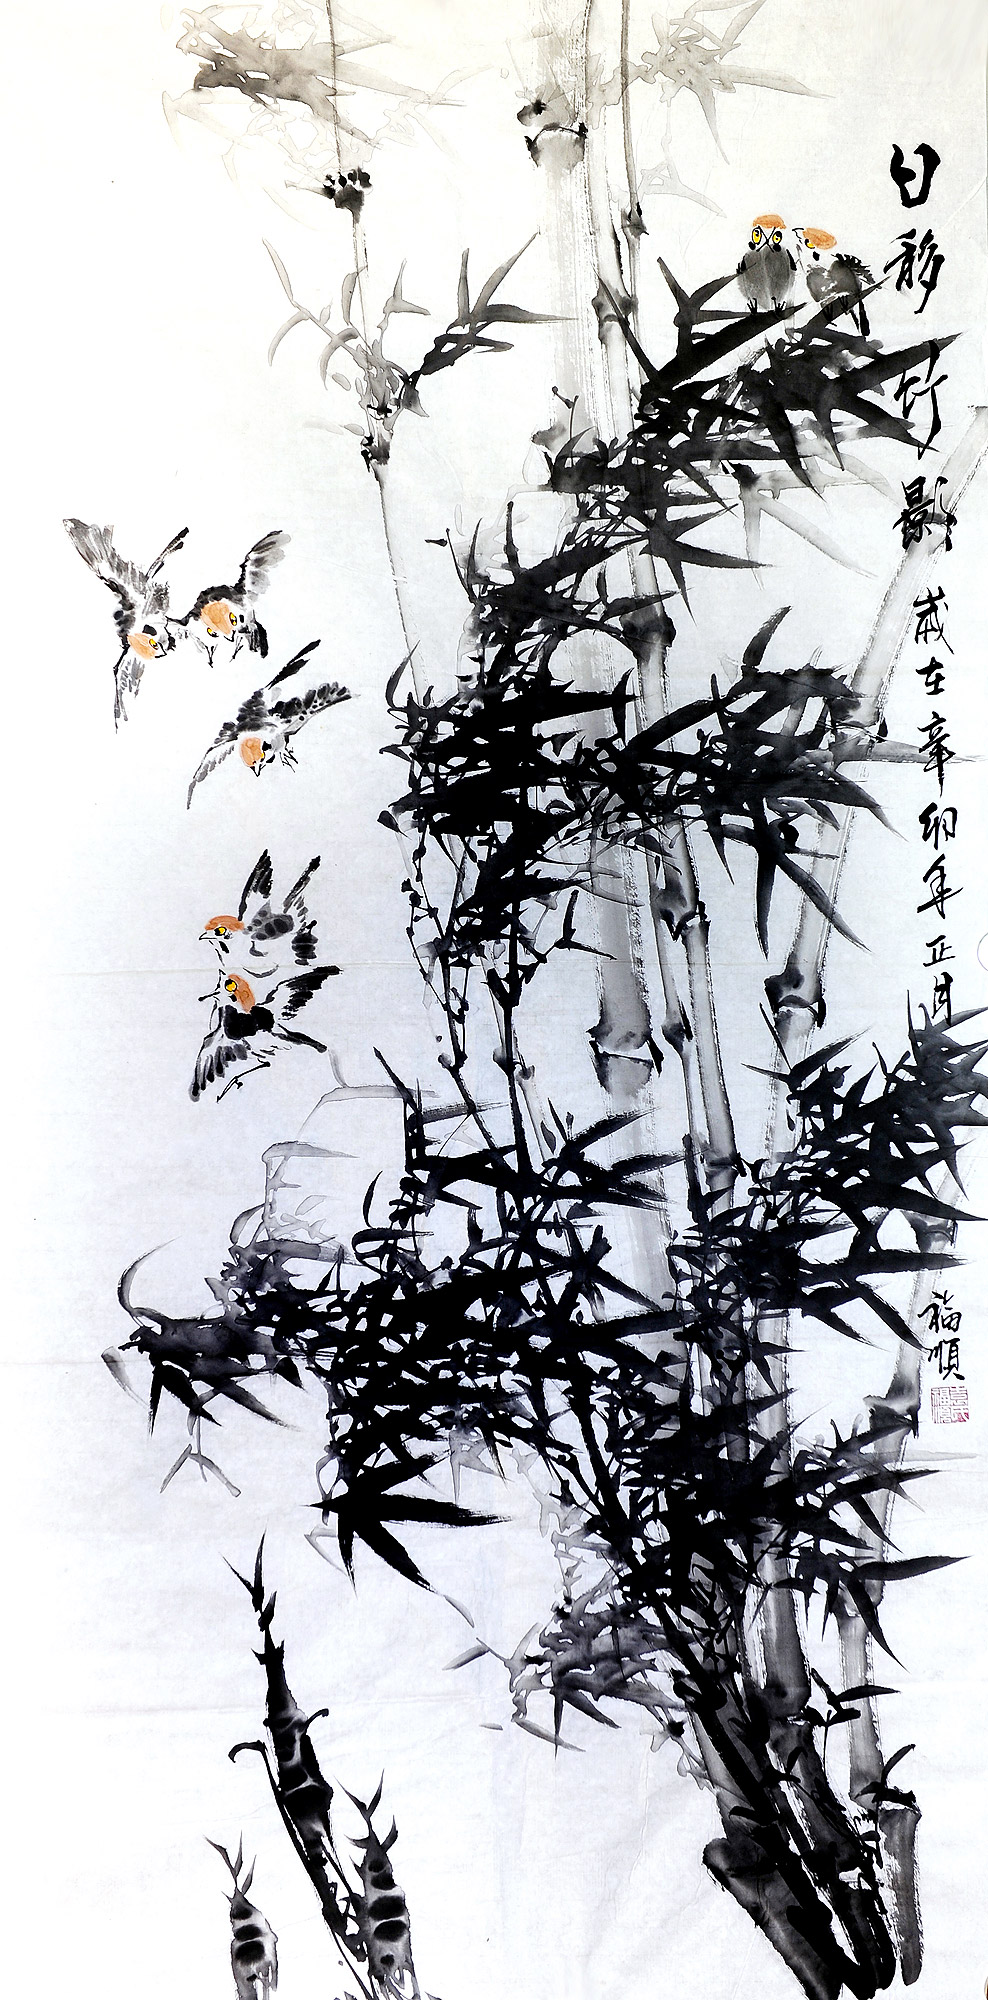 日移竹影 歲在辛卯年正月
福順